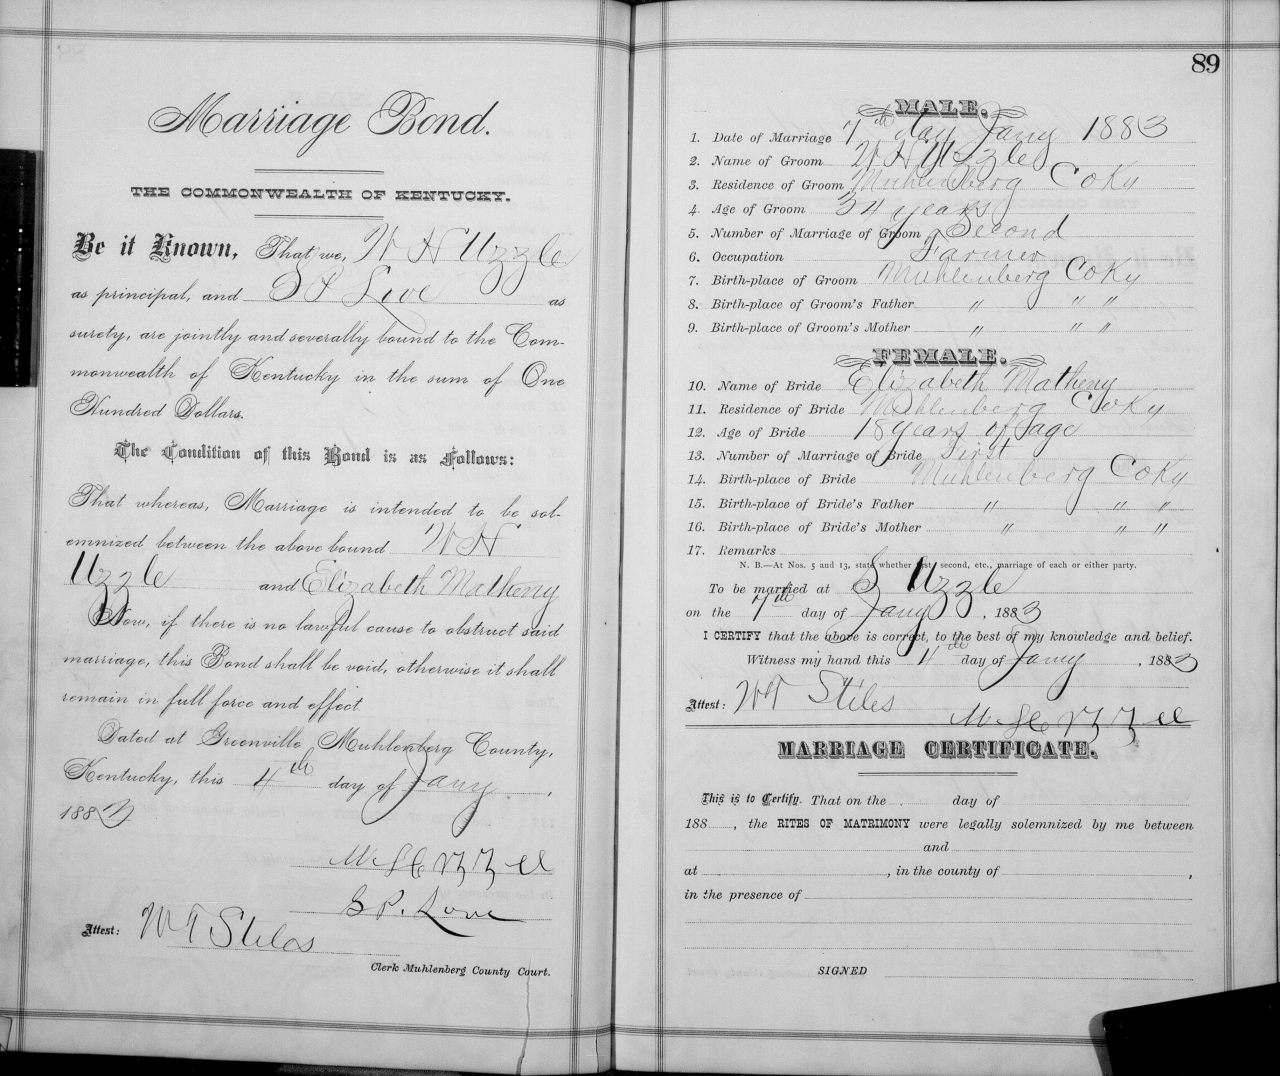 Marriage Bond.
THE COMMONWEALTH OF KENTUCKY.
Be it Known, That we, W H Uzzle
as principal, and S P Love as
surety, are jointly and severally bound to the Com-
monwealth of Kentucky in the sum of One
Hundred Dollars.
The Condition of this Bond is as Follows:
That whereas, Marriage is intended to be sol-
emnized between the above bound W H
Uzzle and Elizabeth Matheny
Now, if there is no lawful cause to obstruct said
marriage, this Bond shall be void, otherwise it shall
remain in full force and effect
Dated at Greenville Muhlenberg County,
Kentucky, this 4th day of Jany,
1883
W H Uzzell
S P. Love
Attest: W T Stiles
Clerk Muhlenberg County Court.
89
MALE.
1. Date of Marriage 7th day Jany 1883
2. Name of Groom W H Uzzle
3. Residence of Groom Muhlenberg Co Ky
4. Age of Groom 34 years
5. Number of Marriage of Groom Second
6. Occupation Farmer
7. Birth-place of Groom Muhlenberg Co Ky
8. Birth-place of Groom's Father " " "
9. Birth-place of Groom's Mother " " "
FEMALE.
10. Name of Bride Elizabeth Matheny
11. Residence of Bride Muhlenberg Co Ky
12. Age of Bride 18 years of age
13. Number of Marriage of Bride First
14. Birth-place of Bride Muhlenberg Co Ky
15. Birth-place of Bride's Father " " "
16. Birth-place of Bride's Mother " " "
17. Remarks
N. B.—At Nos. 5 and 13, state whether first second, etc., marriage of each or either party.
To be married at Uzzle
on the 7th day of Jany, 1883
I CERTIFY that the above is correct, to the best of my knowledge and belief.
Witness my hand this 4th day of Jany, 1883
Attest: W T Stiles
W H Uzzell
MARRIAGE CERTIFICATE.
This is to Certify. That on the day of
188 , the RITES OF MATRIMONY were legally solemnized by me between
and
at , in the county of ,
in the presence of
SIGNED